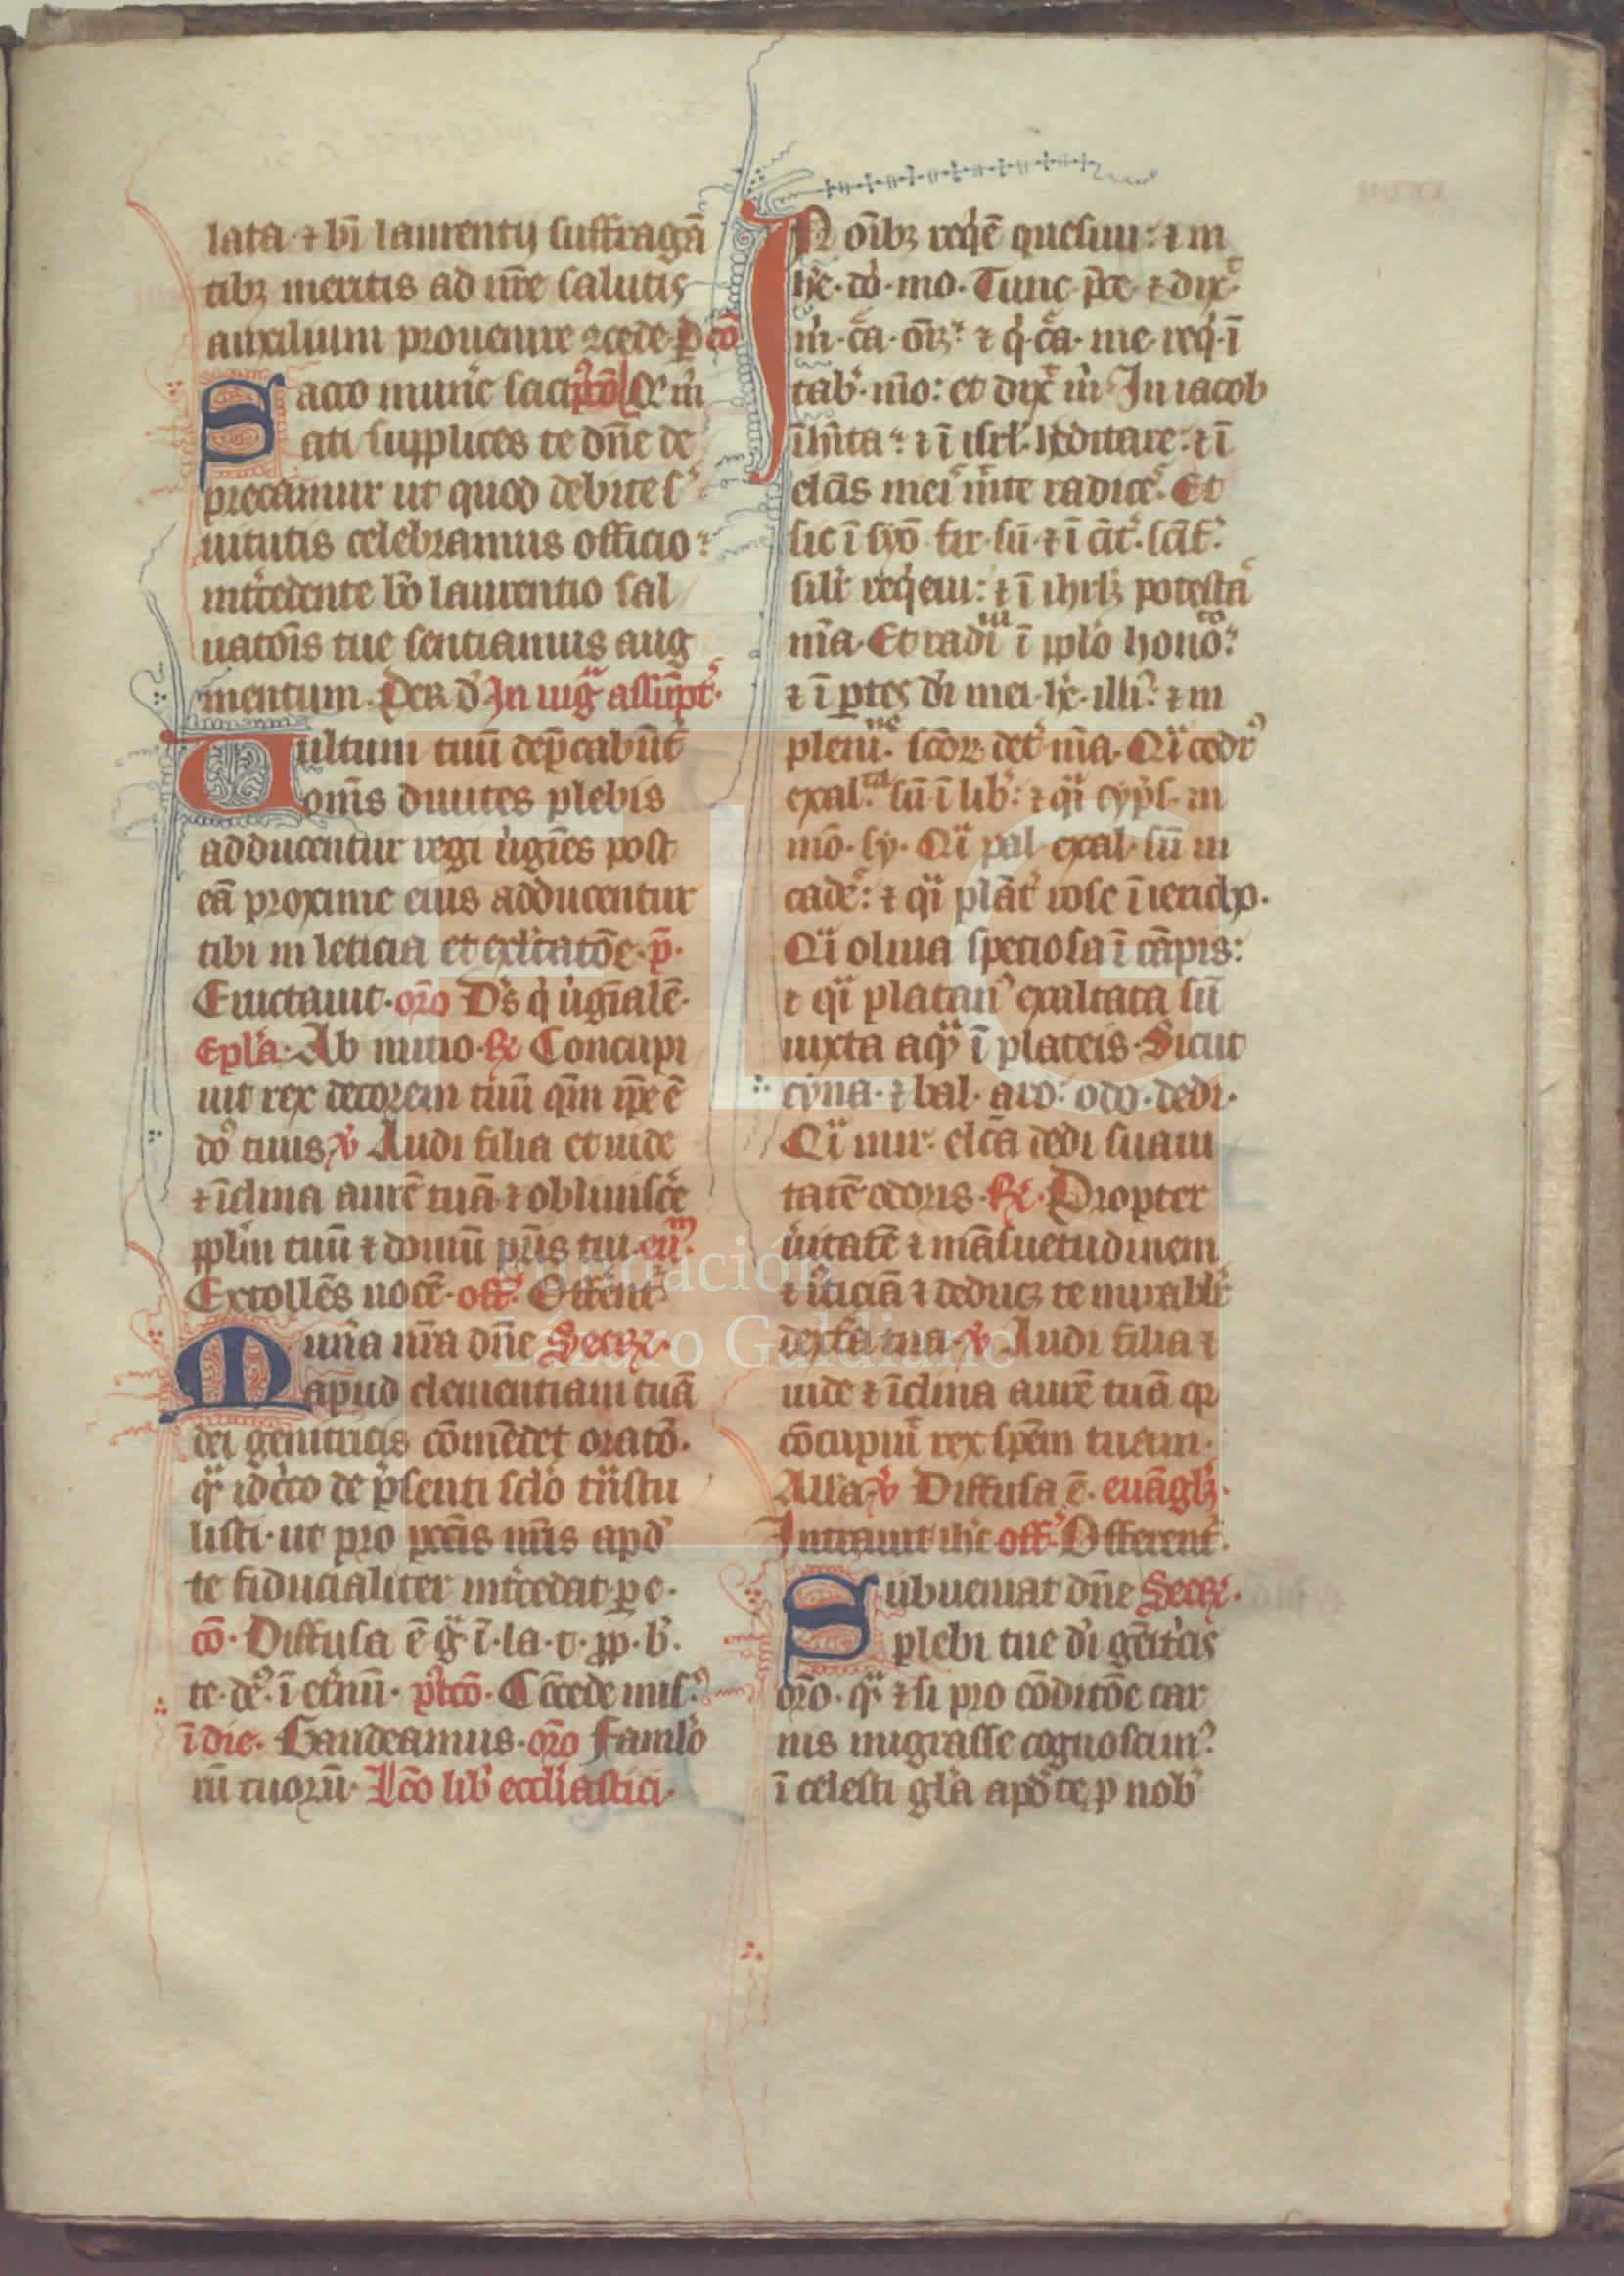 lata ⁊ bi̅ laurentij suffragan̅
tibꝫ meritis ad nr̅e salutis
auxilium prouenire ꝯcede. P. co̅
Sacro mune̅ saciati supplices te dn̅e de
precamur ut quod debite s̓
uitutis celebramus officio:
int̓cedente bo̅ laurentio sal
uato̅is tue sentiamus aug
mentum. Per d̓ In uig̓ assu̅pt̓.
Uultum tuu̅ dep̅cabu̅t̓
om̅s diuites plebis
adducentur regi u̓gi̅es post
ea̅ proxime eius adducentur
tibi in leticia et exultato̅e. p̅.
Eructauit. or̅o D̅s q̓ u̓gi̅ale̅.
Epl̅a. Ab initio. ℟ Concupi
uit rex decorem tuu̅ qm̅ ip̅e e̅
do̓ tuus ℣ Audi filia et uide
⁊ i̅clina aure̅ tua̅ ⁊ obliuisce̓
pplm̅ tuu̅ ⁊ domu̅ pr̅is tui. eu̅.
Extolle̅s uoce̅. off̓. Offe̓nt̓
Mun̅a nr̅a dn̅e Secr̓.
apud clementiam tua̅
dei genitricis co̅me̅det orato̅.
q̓ idcirco de p̓senti sc̅lo t̓nstu
listi. ut pro pcc̅is nr̅is apd̓
te fiducialiter int̓cedat. p e.
co̅. Diffusa e̅ g̓ i̅. la. t. pp. b̓.
te. de̓. i̅ et̓nu̅. p̓tco̅. C̅cede mis̓.
i̅ die. Gaudeamus. or̅o Famulo
ru̅ tuoru̅. Lc̅o lib̓ eccl̅iastici.
In oi̅bꝫ req̓e̅ quesiui: ⁊ in
he̅. do̓. mo. Tunc. p̅ce. ⁊ dix̓
m̓. c̅a. om̅. ⁊ q̓. c̅a. me. req̓. i̅
tab̓. m̅o: et dix̓ m̓ In iacob
i̅hi̅ta: ⁊ i̅ isrl̅. he̓ditare: ⁊ i̅
elc̅is mei̓ m̓te radice̓. Et
sic i̅ syo̅ fir. su̅. ⁊ i̅ ci̅t̓. sc̅if̓.
sil̅r req̓eui: ⁊ i̅ ihrl̅ꝫ potesta̓
m̅a. Et radi̓ i̅ pplo hono̓:
⁊ i̅ p̱tes di̅ mei. he̅. illi̓: ⁊ in
pleni̓. sc̅oꝝ det̓ m̅a. Q̓i cedr̓
exal. su̅ i̅ lib̓: ⁊ q̓i cyp̓s. in
mo̅. sy. Q̓i pal. exal. su̅ in
cade̓: ⁊ q̓i pla̅t̓ rose i̅ iericho.
Q̓i oliua speciosa i̅ ca̅pis:
⁊ q̓i platan̓ exaltata su̅
iuxta aq̓ i̅ plateis. Sicut
cy̅na. ⁊ bal. aro: odo. dedi.
Q̓i mir. elc̅a dedi suaui
tate̅ odoris. ℟. Propter
u̓itate̅ ⁊ ma̅suetudinem
⁊ i̓ticia̅ ⁊ deducꝫ te mirabil̅r
dext̓a tua. ℣ Audi filia ⁊
uide ⁊ i̅clina aure̅ tua̅ qꝛ
co̅cupiui̓ rex spe̅m tuam.
All̅a ℣ Diffusa e̅. eua̅gl̓ꝫ.
Intrauit ih̅c off̓. Offerent̓.
Subueniat dn̅e Secr̓.
plebi tue di̅ ge̅it̓cis
or̅o. q̓ ⁊si pro co̅dico̅e car
nis migrasse cognoscim̓:
i̅ celesti gl̅a apd̓ te p nob̓
Fundación
Lázaro Galdiano
FLG